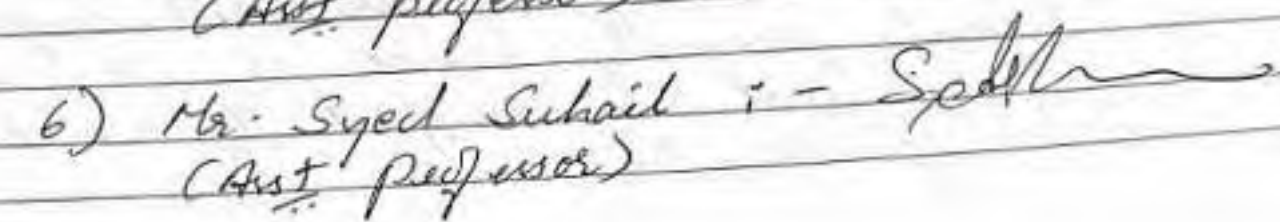 (Asst professor)
6) Mr. Syed Suhail :-
(Asst professor)